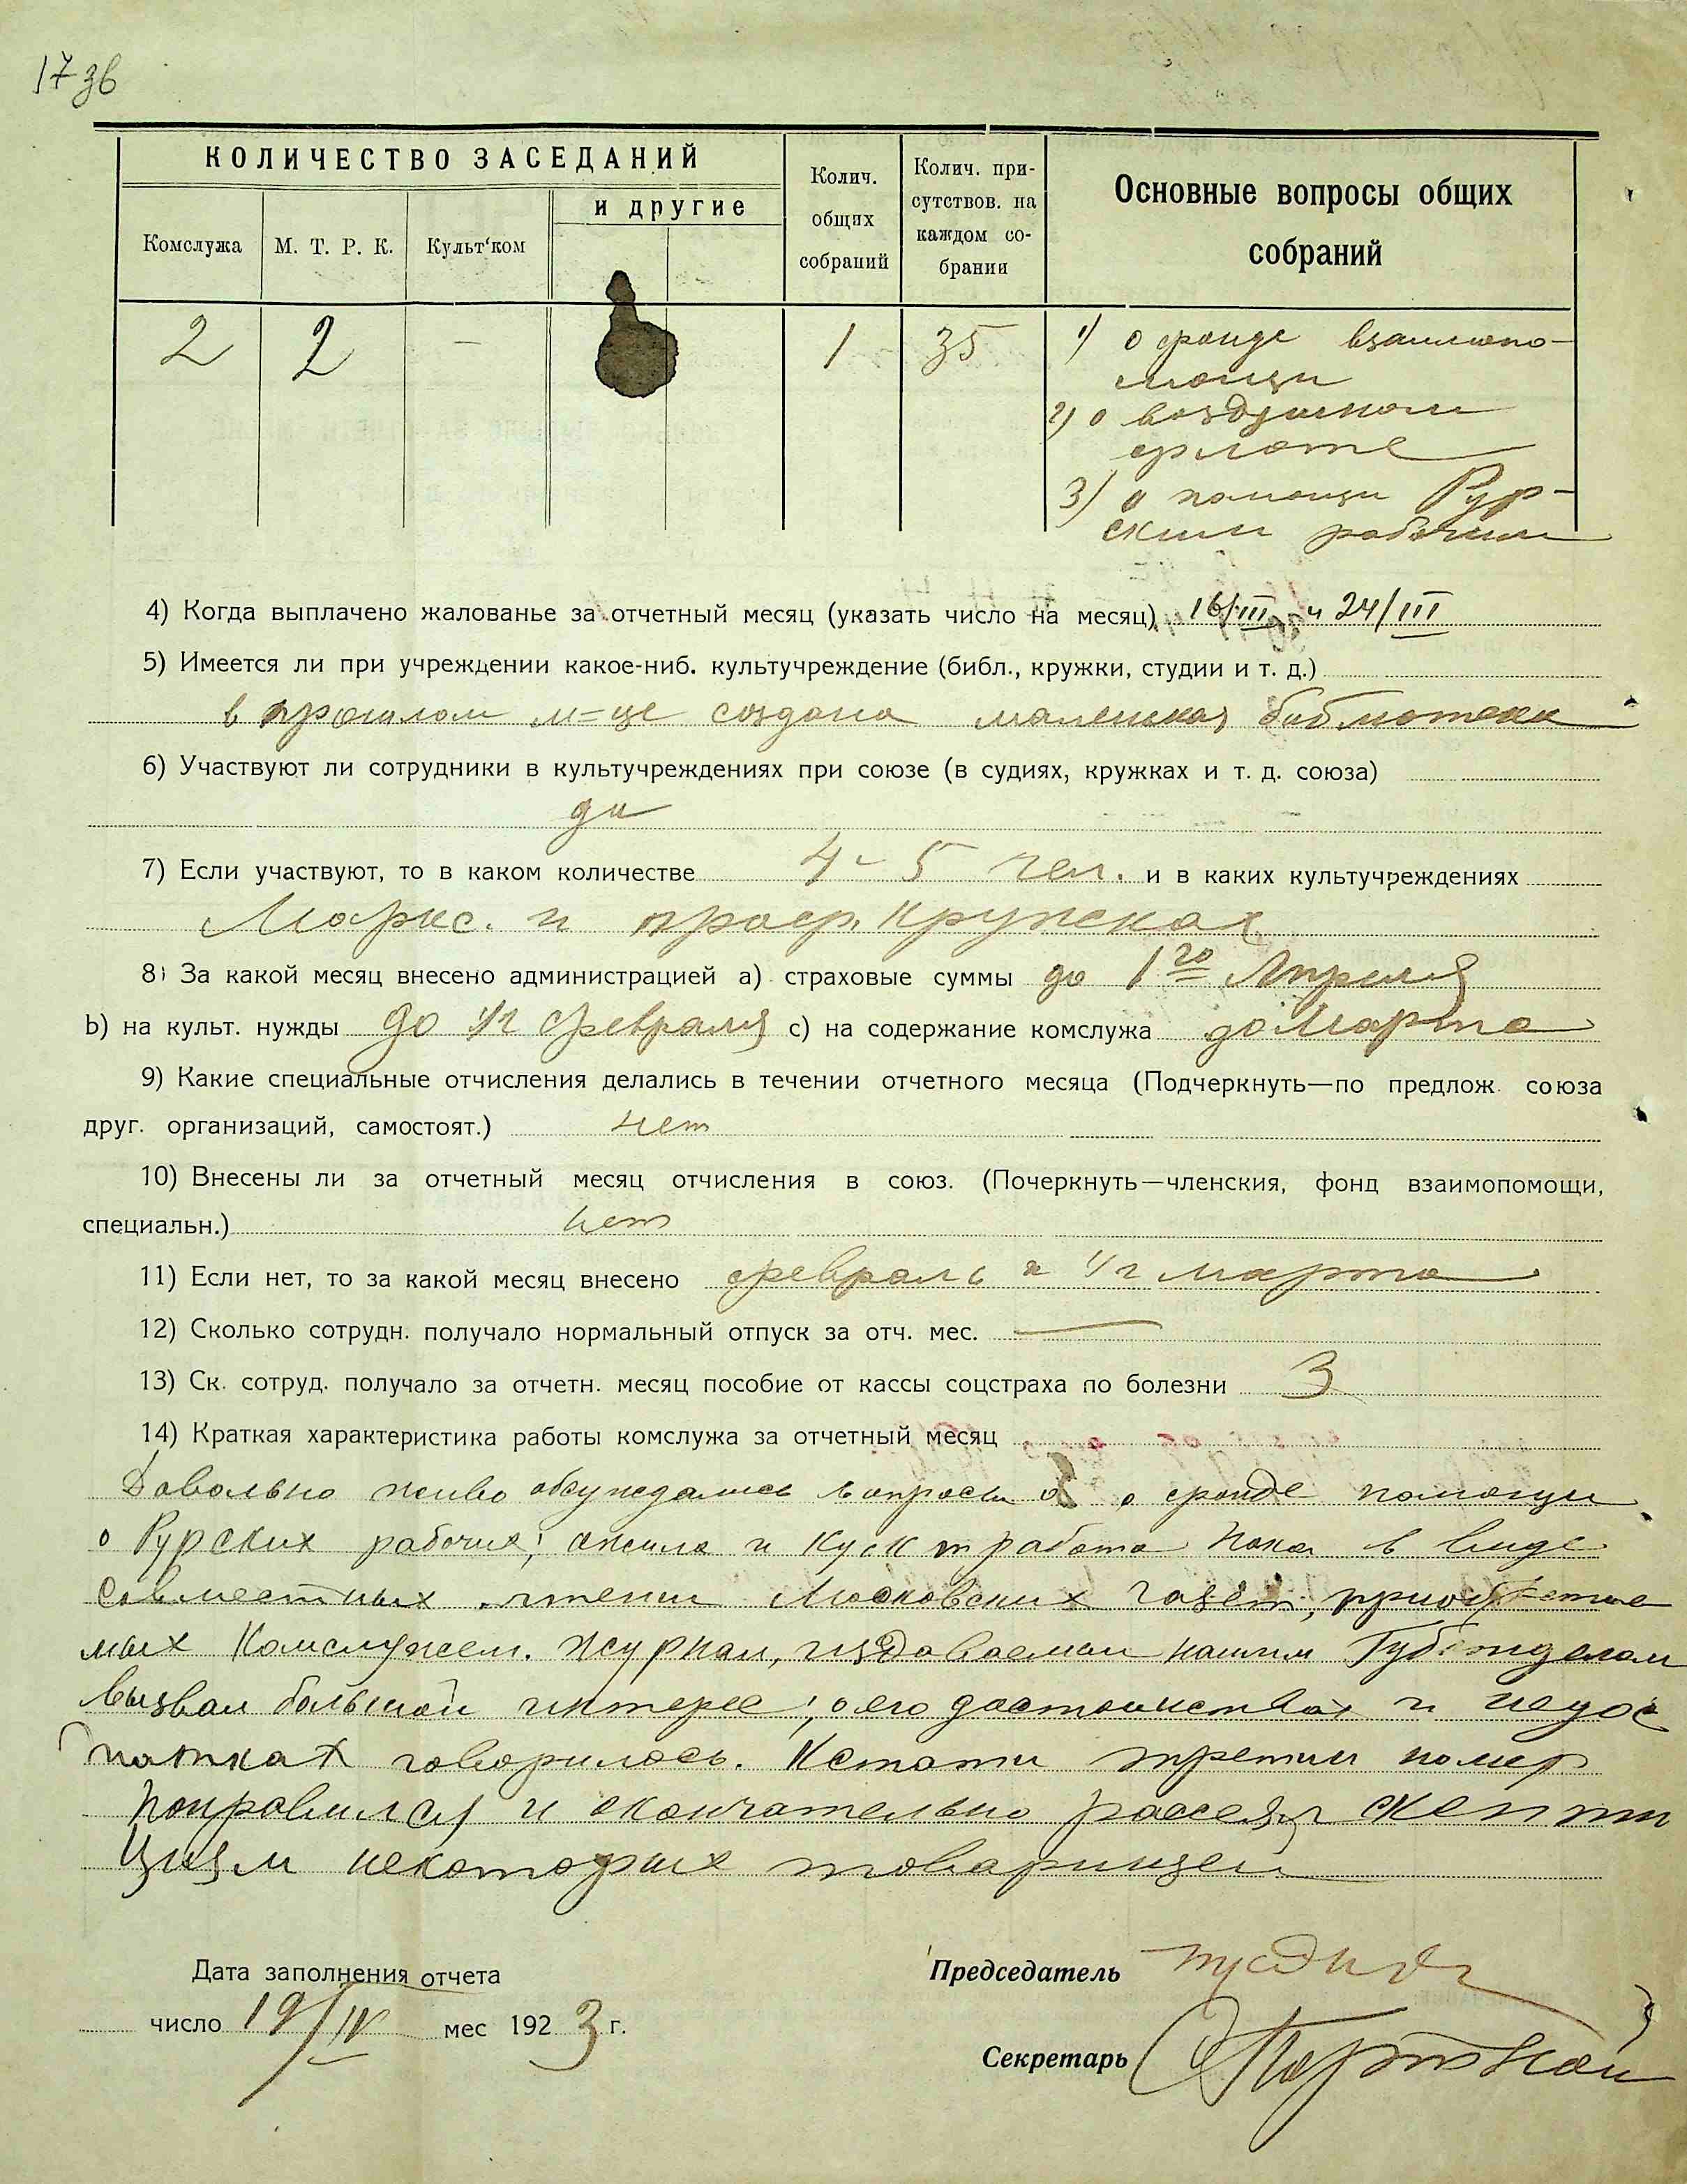 17 зв
КОЛИЧЕСТВО ЗАСЕДАНИЙ
и другие
Комслужа
М. Т. Р. К.
Культ‘ком
Колич.
общих
собраний
Колич. при-
сутствов. на
каждом со-
брании
Основные вопросы общих
собраний
2
2
—
1
35
1) о фонде взаимопо-
мощи
2) о воздушном
флоте
3) о помощи Рур-
ским рабочим
4) Когда выплачено жалованье за отчетный месяц (указать число на месяц) 16/III и 24/III
5) Имеется ли при учреждении какое-ниб. культучреждение (библ., кружки, студии и т. д.)
в прошлом м=це создана маленькая библиотека
6) Участвуют ли сотрудники в культучреждениях при союзе (в судиях, кружках и т. д. союза)
да
7) Если участвуют, то в каком количестве 4 - 5 чел. и в каких культучреждениях
Маркс. и проф. кружках
8) За какой месяц внесено администрацией а) страховые суммы до 1го Апреля
b) на культ. нужды до 1/2 февраля с) на содержание комслужа до Марта
9) Какие специальные отчисления делались в течении отчетного месяца (Подчеркнуть—по предлож. союза
друг. организаций, самостоят.) нет
10) Внесены ли за отчетный месяц отчисления в союз. (Почеркнуть—членския, фонд взаимопомощи,
специальн.) нет
11) Если нет, то за какой месяц внесено февраль и 1/2 марта
12) Сколько сотрудн. получало нормальный отпуск за отч. мес. —
13) Ск. сотруд. получало за отчетн. месяц пособие от кассы соцстраха по болезни 3
14) Краткая характеристика работы комслужа за отчетный месяц
Довольно живо обсуждались вопросы о фонде помощи
о Рурских рабочих; ожила и работа пока в виде
совместных чтений Московских газет,
мых Комслужем. Журнал, издаваемый нашим Губотделом
вызвал большой интерес; о его достоинствах и недос
татках говорилось. Кстати третий номер
поправился и окончательно рассеял скепти
цизм некоторых товарищей
Дата заполнения отчета
число 19/IV мес 1923 г.
Председатель
Секретарь Портной